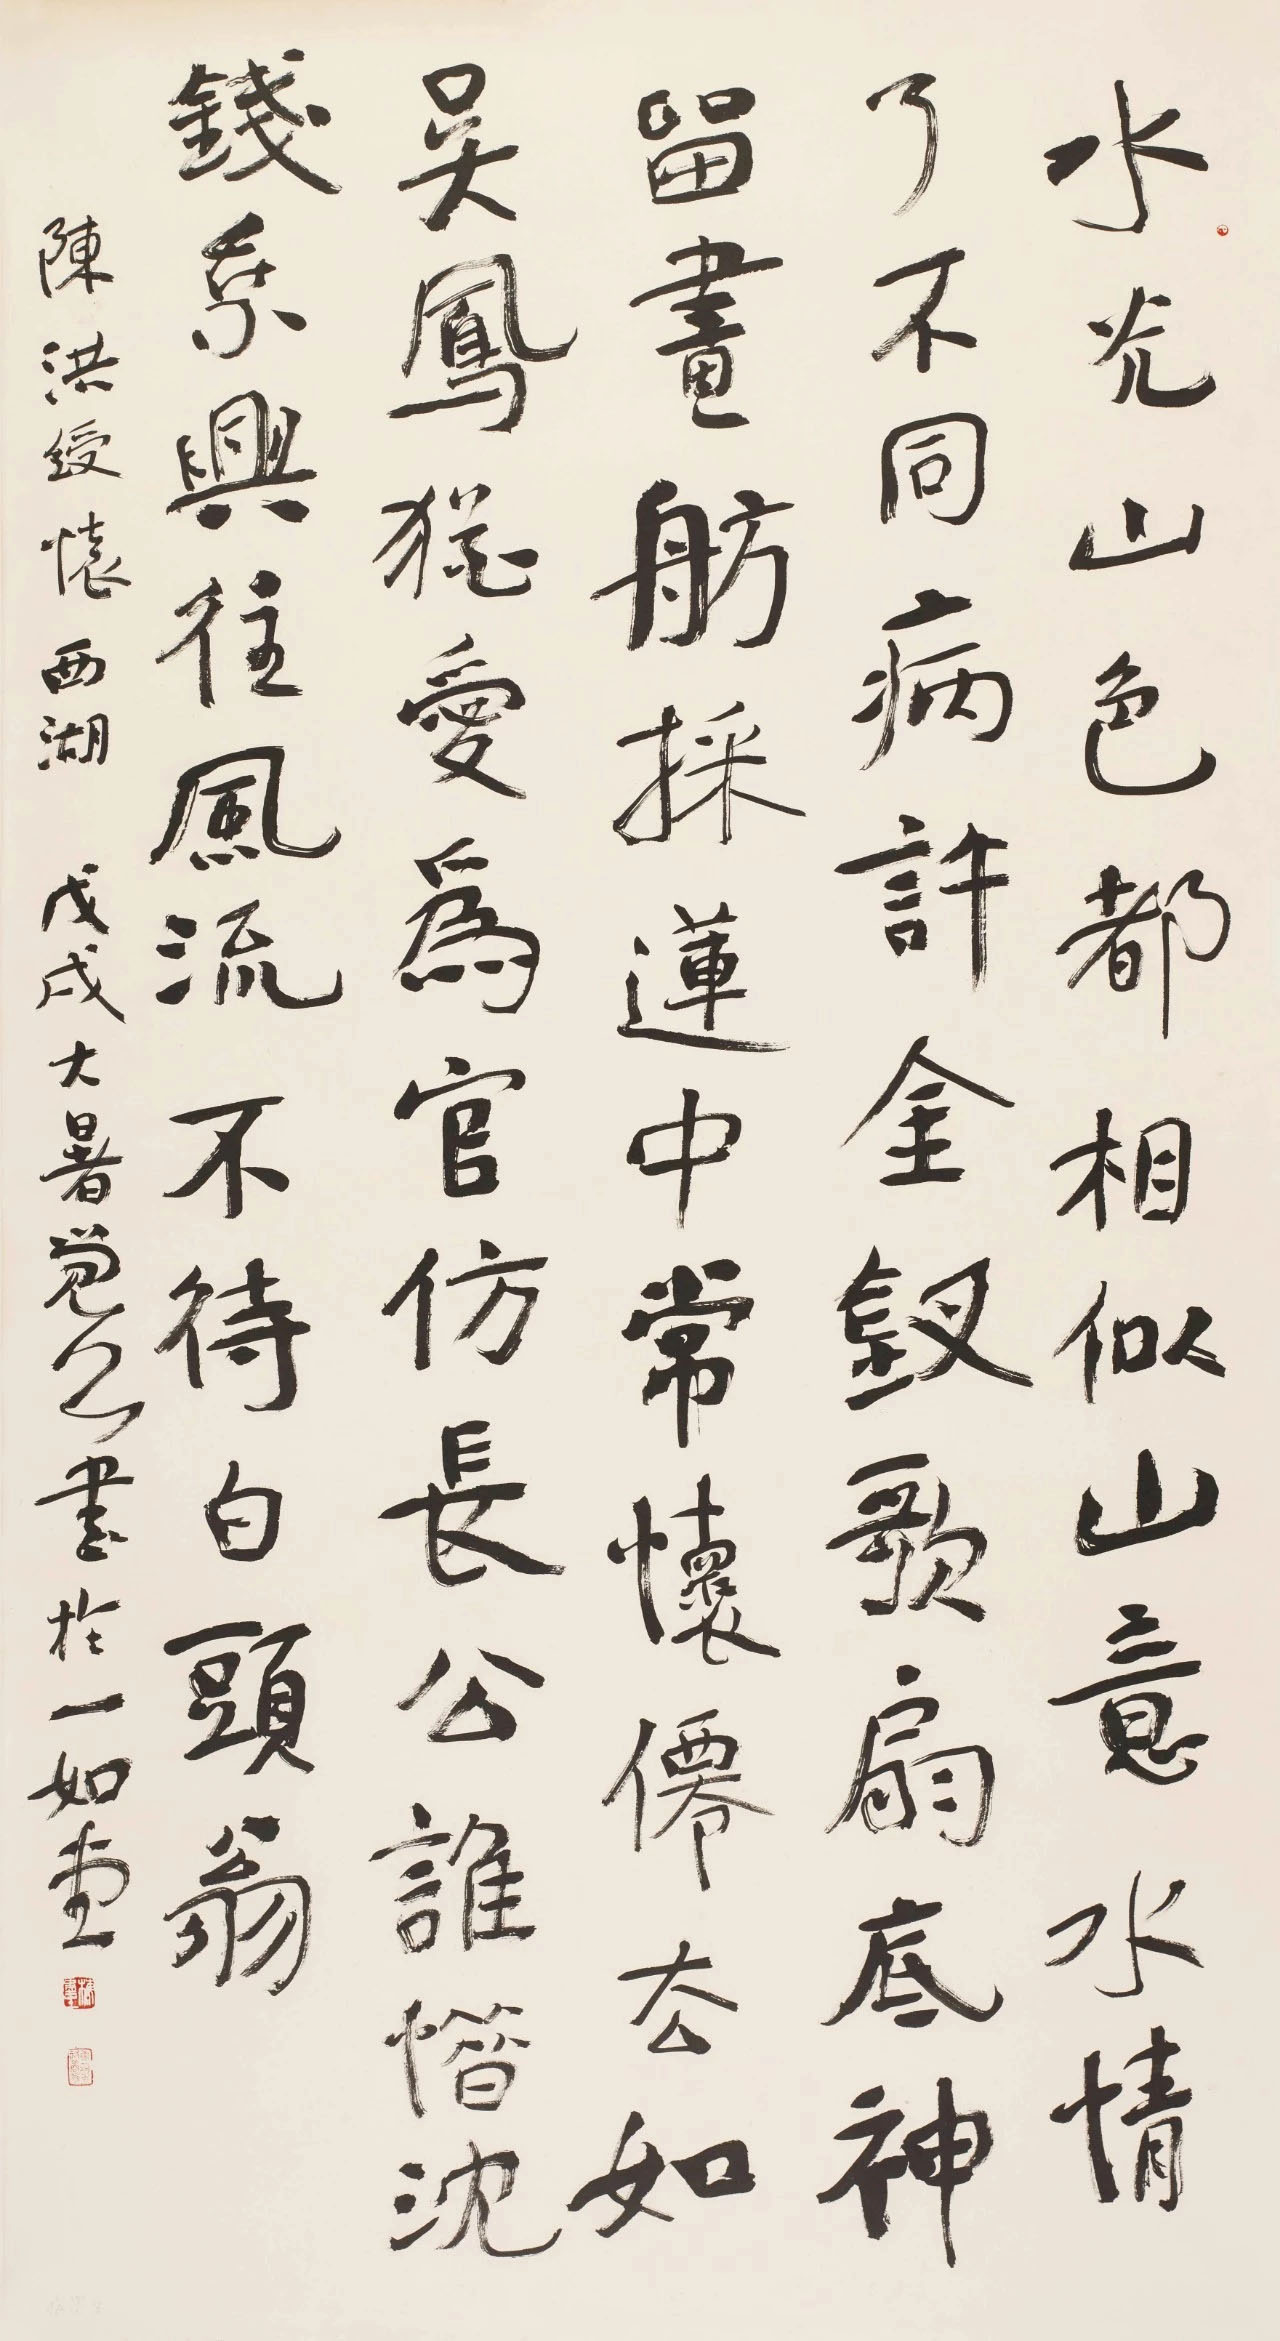 水光山色都相似山意水情
了不同病許金釵歌扇底神
留畫舫採蓮中常懷僊去如
吴鳳猶愛爲官仿長公誰惜沈
錢乘興往風流不待白頭翁
陳洪綬懷西湖 戊戌大暑覺公書於一如堂